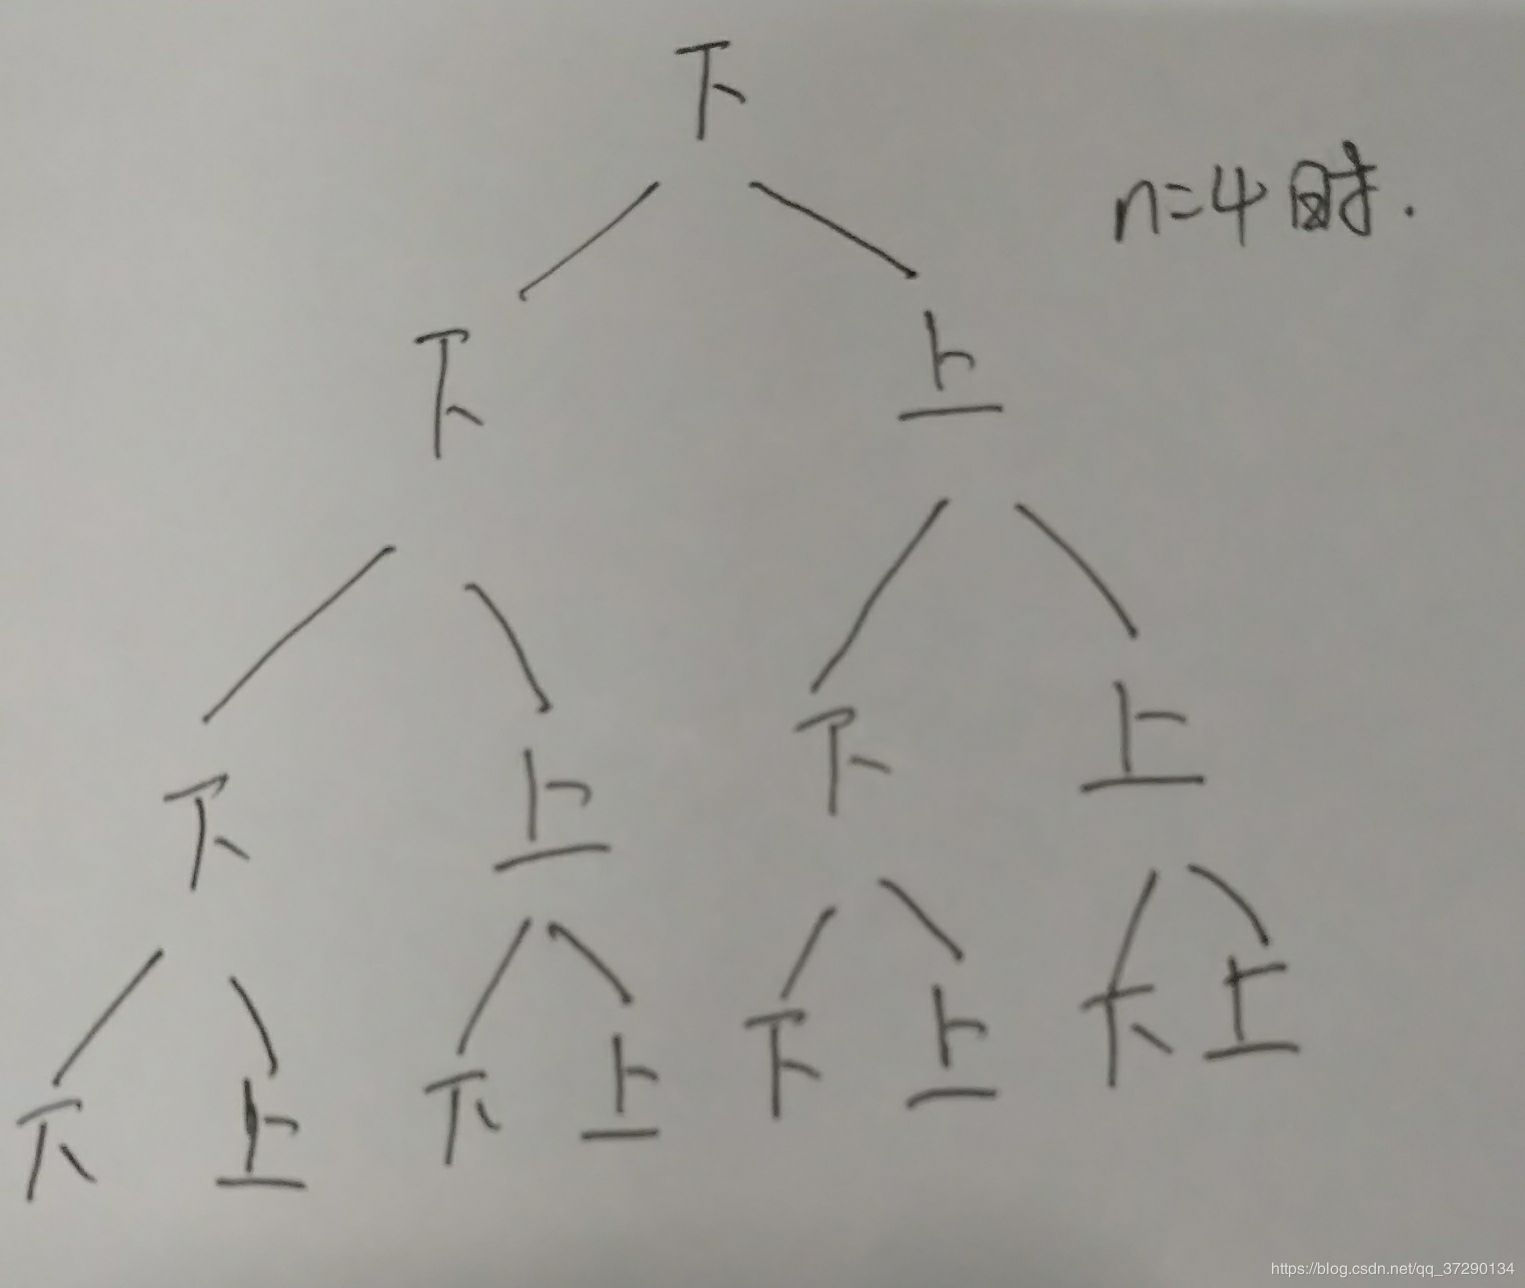 下
n=4时.
下 上
下 上 下 上
下 上 下 上 下 上 下 上
https://blog.csdn.net/qq_37290134